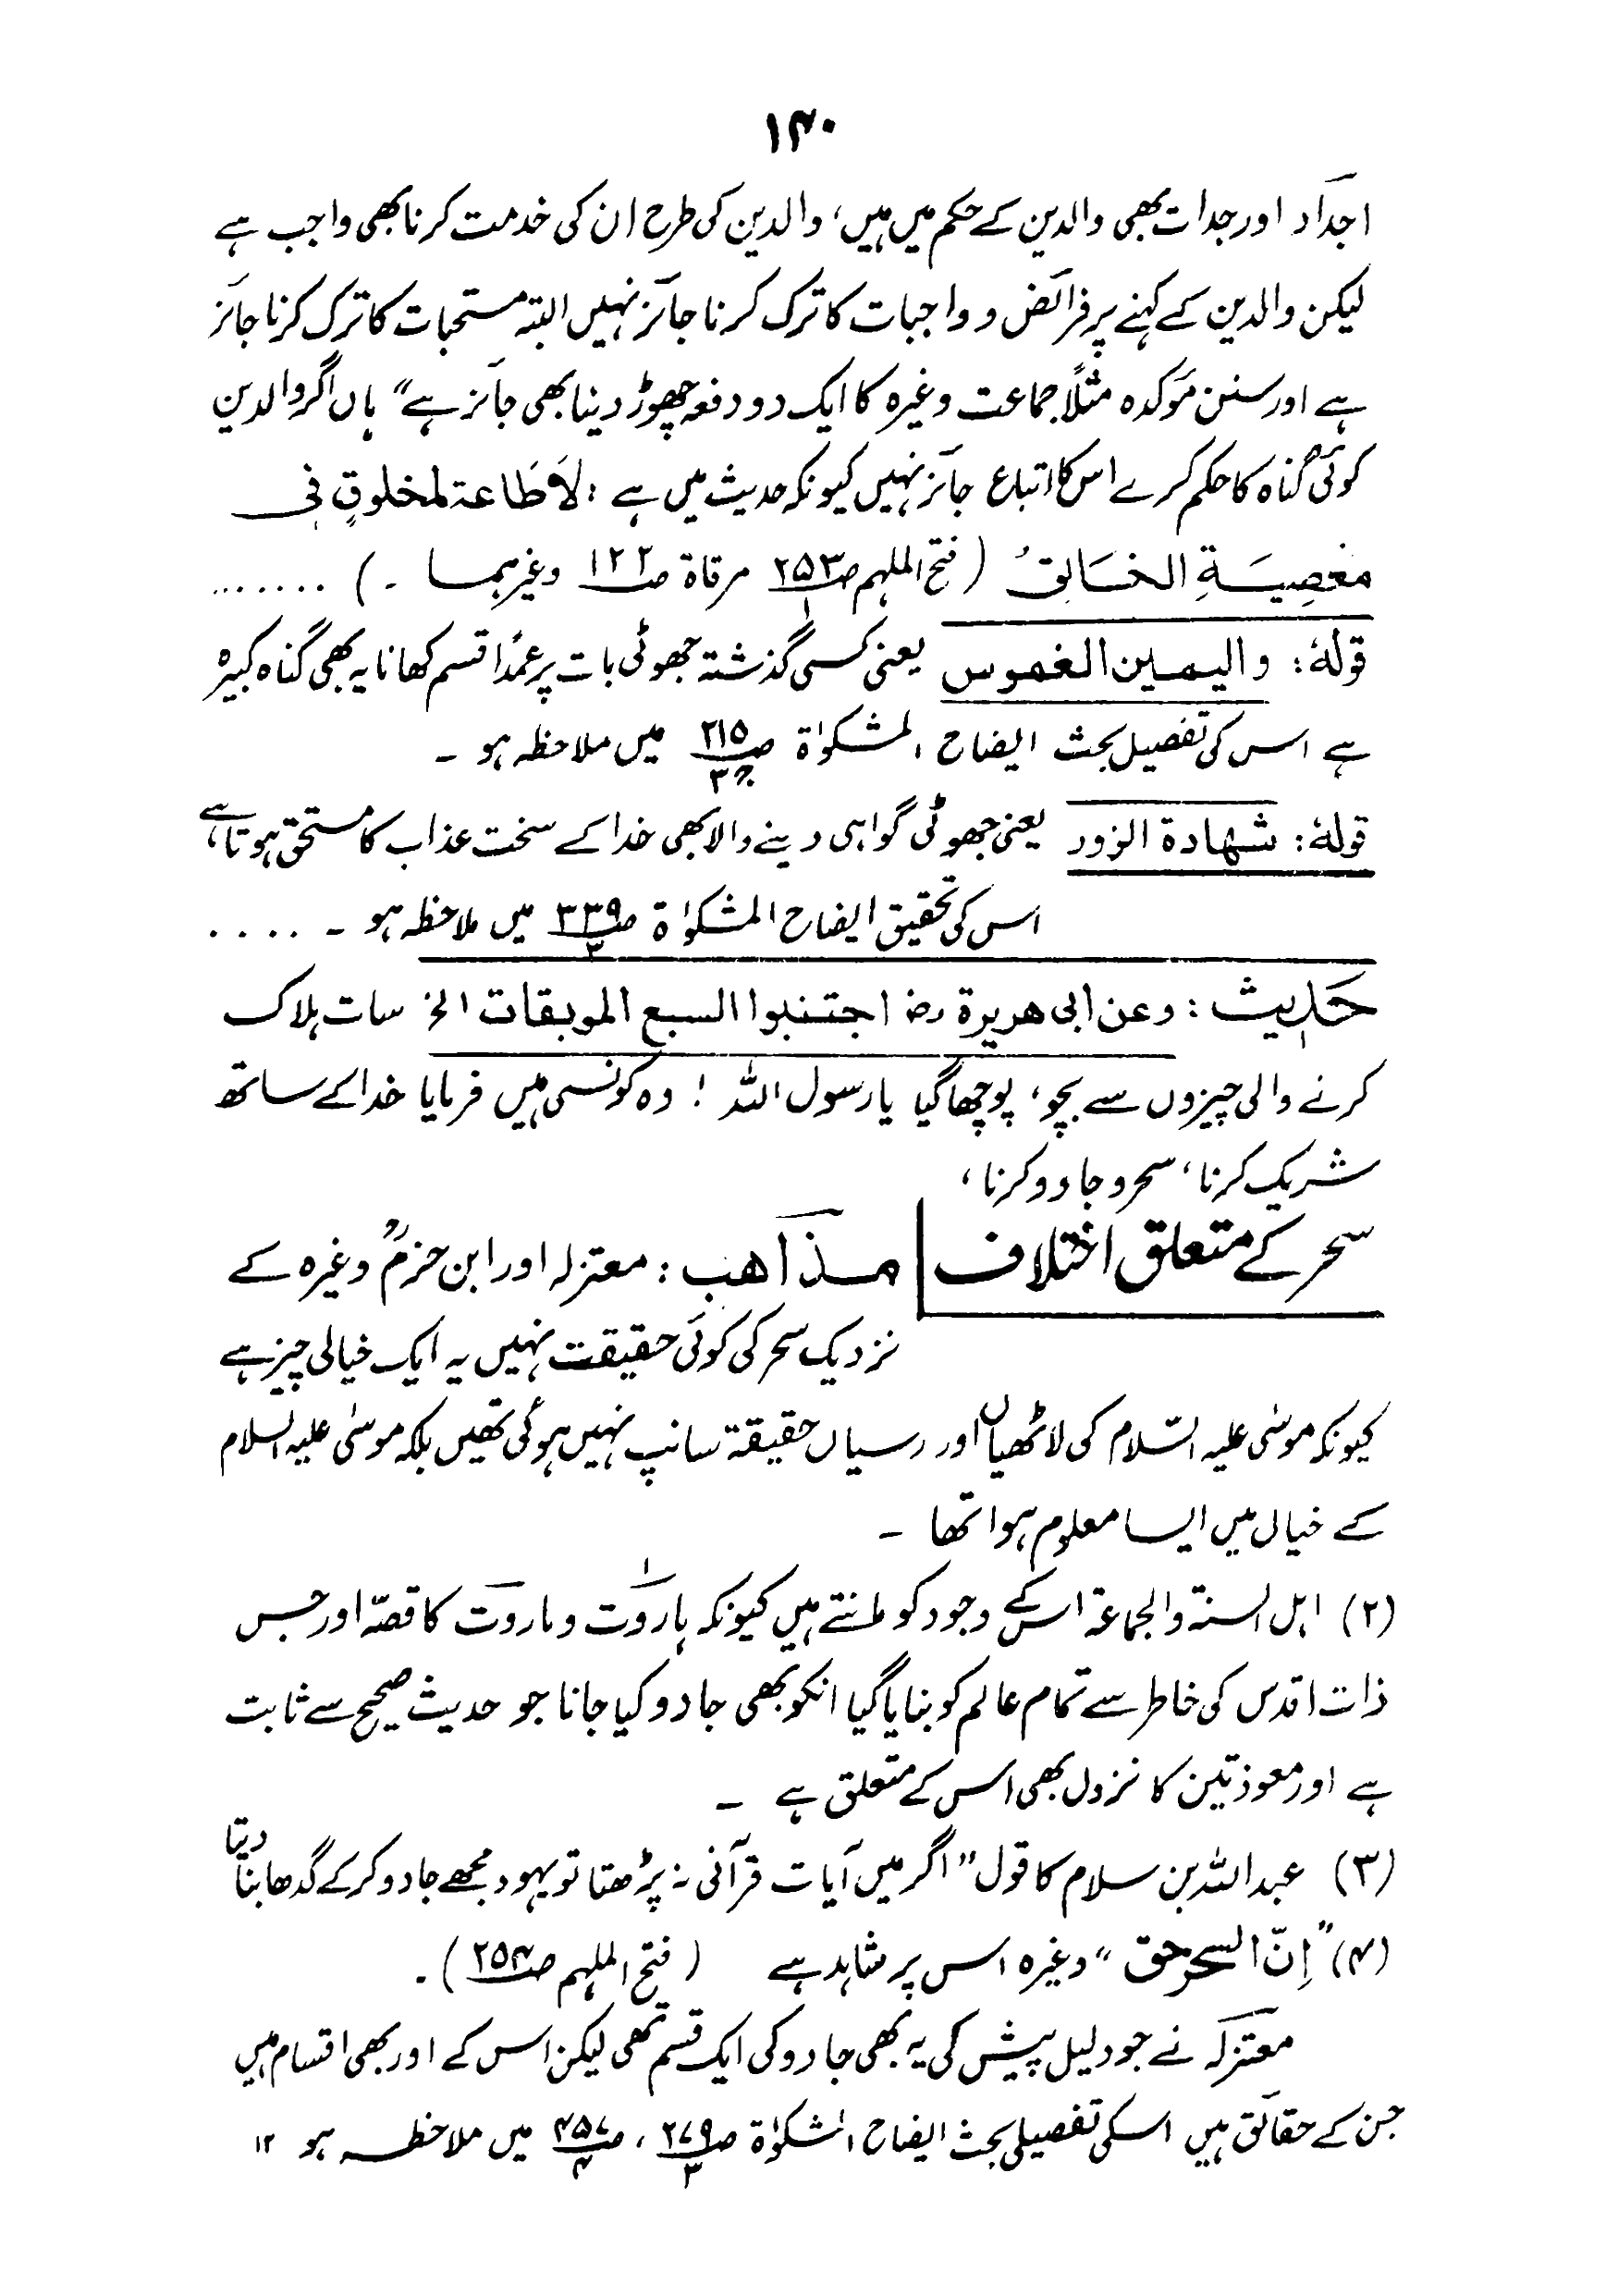 ۱۴۰
اجداد اور جدات بھی والدین کے حکم میں ہیں، والدین کی طرح ان کی خدمت کرنا بھی واجب ہے
لیکن والدین کے کہنے پر فرائض و واجبات کا ترک کرنا جائز نہیں البتہ مستحبات کا ترک کرنا جائز
ہے اور سنن مؤکدہ مثلاً جماعت وغیرہ کا ایک دو دفعہ چھوڑ دینا بھی جائز ہے" ہاں اگر والدین
کوئی گناہ کا حکم کرے اس کا اتباع جائز نہیں کیونکہ حدیث میں ہے : لاَ طَاعۃ لمخلوقٍ فی
معصِیَۃِ الخَالِقُ (فتح الملہم ص۲۵۳/۱ مرقاۃ ص۱۲۲ وغیرہما ۔) .......
قولہٗ : والیمین الغموس یعنی کسی گذشتہ جھوٹی بات پر عمداً قسم کھانا یہ بھی گناہ کبیرہ
ہے اس کی تفصیل بحث ایضاح المشکوٰۃ ص۲۱۵ ج۳ میں ملاحظہ ہو ۔
قولہٗ : شھادۃ الزور یعنی جھوٹی گواہی دینے والا بھی خدا کے سخت عذاب کا مستحق ہوتا ہے،
اس کی تحقیق ایضاح المشکوٰۃ ص۳۳۹/۳ میں ملاحظہ ہو ۔ ....
حَدِیث : وعن ابی ھریرۃ رض اجتنبوا السبع الموبقات الخ سات ہلاک
کرنے والی چیزوں سے بچو، پوچھا گیا یا رسول اللہ ! وہ کونسی ہیں فرمایا خدا کے ساتھ
شریک کرنا، سحر و جادو کرنا،
سحر کے متعلق اختلاف مذاھب : معتزلہ اور ابن حزمؒ وغیرہ کے
نزدیک سحر کی کوئی حقیقت نہیں یہ ایک خیالی چیز ہے
کیونکہ موسٰی علیہ السّلام کی لاٹھیاں اور رسیاں حقیقۃ سانپ نہیں ہوئی تھیں بلکہ موسٰی علیہ السلام
کے خیال میں ایسا معلوم ہوا تھا ۔
(۲) اہل السنۃ والجماعۃ اس کے وجود کو مانتے ہیں کیونکہ ہاروت و ماروت کا قصّہ اور جس
ذات اقدس کی خاطر سے تمام عالم کو بنایا گیا انکو بھی جادو کیا جانا جو حدیث صحیح سے ثابت
ہے اور معوذتین کا نزول بھی اس کے متعلق ہے ۔
(۳) عبداللہ بن سلام کا قول" اگر میں آیات قرآنی نہ پڑھتا تو یہود مجھے جادو کرکے گدھا بنا دیتا
(۴) "اِنّ السحر حق" وغیرہ اس پر شاہد ہے (فتح الملہم ص۲۵۴) ۔
معتزلہ نے جو دلیل پیش کی یہ بھی جادو کی ایک قسم تھی لیکن اس کے اور بھی اقسام ہیں
جن کے حقائق ہیں اسکی تفصیلی بحث ایضاح المشکوٰۃ ص۲۷۹/۳، ص۴۵۷/۴ میں ملاحظہ ہو ۱۲